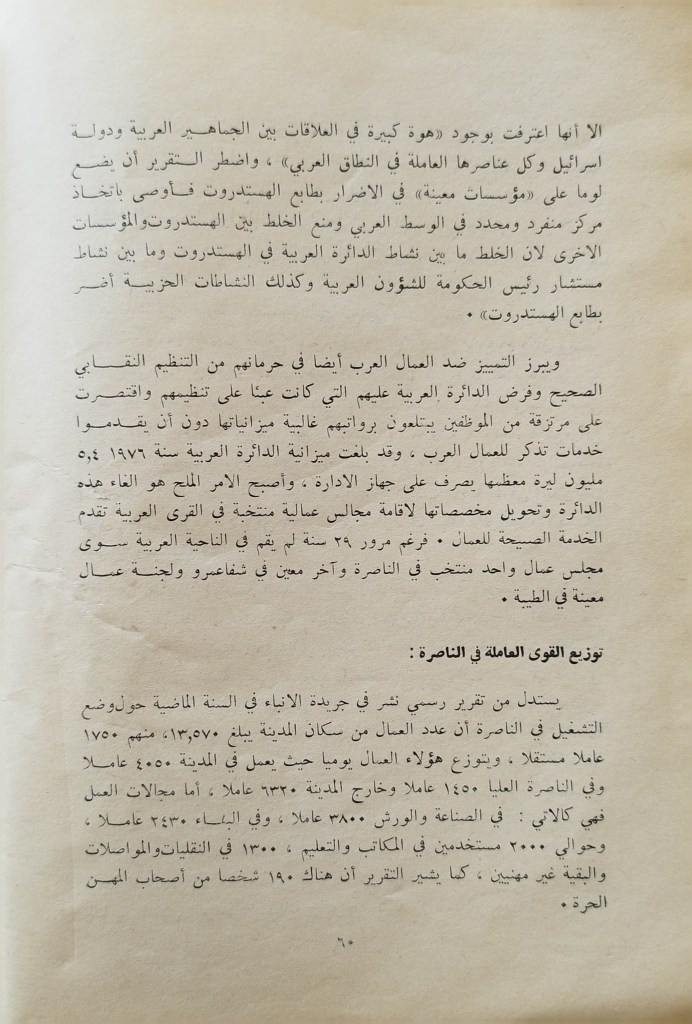 الا أنها اعترفت بوجود «هوة كبيرة في العلاقات بين الجماهير العربية ودولة
اسرائيل وكل عناصرها العاملة في النطاق العربي» ، واضطر التقرير أن يضع
لوما على «مؤسسات معينة» في الاضرار بطابع الهستدروت فأوصى باتخاذ
مركز منفرد ومحدد في الوسط العربي ومنع الخلط بين الهستدروت والمؤسسات
الاخرى لان الخلط ما بين نشاط الدائرة العربية في الهستدروت وما بين نشاط
مستشار رئيس الحكومة للشؤون العربية وكذلك النشاطات الحزبية أضر
بطابع الهستدروت» •
ويبرز التمييز ضد العمال العرب أيضا في حرمانهم من التنظيم النقابي
الصحيح وفرض الدائرة العربية عليهم التي كانت عبئا على تنظيمهم واقتصرت
على مرتزقة من الموظفين يبتلعون برواتبهم غالبية ميزانياتها دون أن يقدموا
خدمات تذكر للعمال العرب ، وقد بلغت ميزانية الدائرة العربية سنة ١٩٧٦ ٥,٤
مليون ليرة معظمها يصرف على جهاز الادارة ، وأصبح الامر الملح هو الغاء هذه
الدائرة وتحويل مخصصاتها لاقامة مجالس عمالية منتخبة في القرى العربية تقدم
الخدمة الصحيحة للعمال • فرغم مرور ٢٩ سنة لم يقم في الناحية العربية سوى
مجلس عمال واحد منتخب في الناصرة وآخر معين في شفاعمرو ولجنة عمال
معينة في الطيبة •
توزيع القوى العاملة في الناصرة :
يستدل من تقرير رسمي نشر في جريدة الانباء في السنة الماضية حول وضع
التشغيل في الناصرة أن عدد العمال من سكان المدينة يبلغ ١٣,٥٧٠، منهم ١٧٥٠
عاملا مستقلا ، ويتوزع هؤلاء العمال يوميا حيث يعمل في المدينة ٤٠٥٠ عاملا
وفي الناصرة العليا ١٤٥٠ عاملا وخارج المدينة ٦٣٢٠ عاملا ، أما مجالات العمل
فهي كالاتي : في الصناعة والورش ٣٨٠٠ عاملا ، وفي البناء ٢٤٣٠ عاملا ،
وحوالي ٢٠٠٠ مستخدمين في المكاتب والتعليم ، ١٣٠٠ في النقليات والمواصلات
والبقية غير مهنيين ، كما يشير التقرير أن هناك ١٩٠ شخصا من أصحاب المهن
الحرة •
٦٠